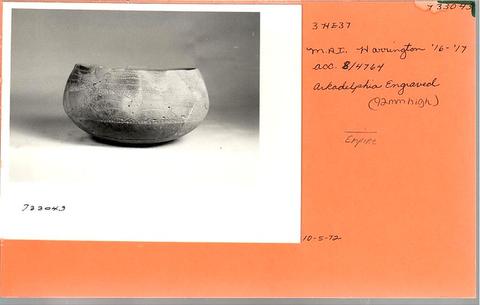 733043
3HE37
M.A.I. Harrington '16-'17
acc. 8/4764
Arkadelphia Engraved
(92mm high)
Empire
733043
10-5-72